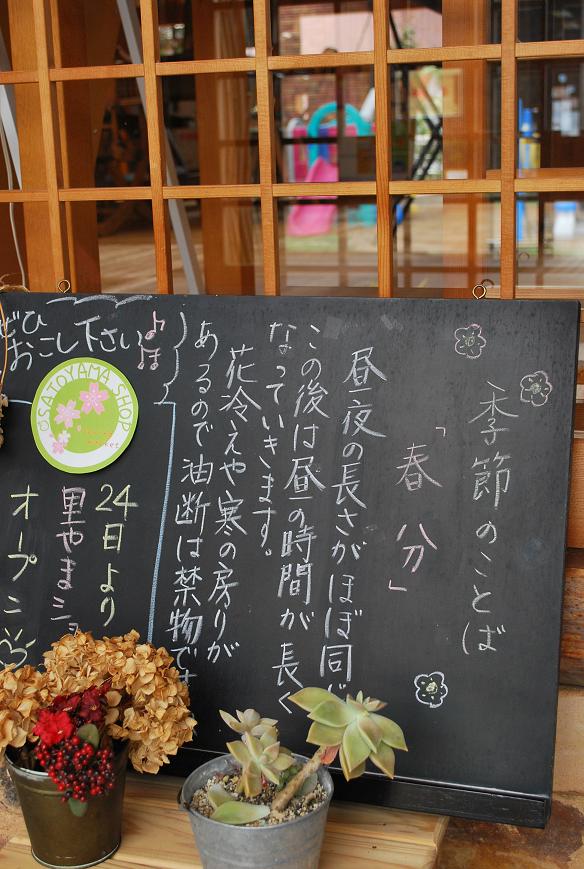 季節のことば
「春分」
昼夜の長さがほぼ同じ
この後は昼の時間が長く
なっていきます。
花冷えや寒の房りが
あるので油断は禁物です
ぜひ
おこし下さい
SATOYAMA SHOP
24日より
里やまショ
オープニ